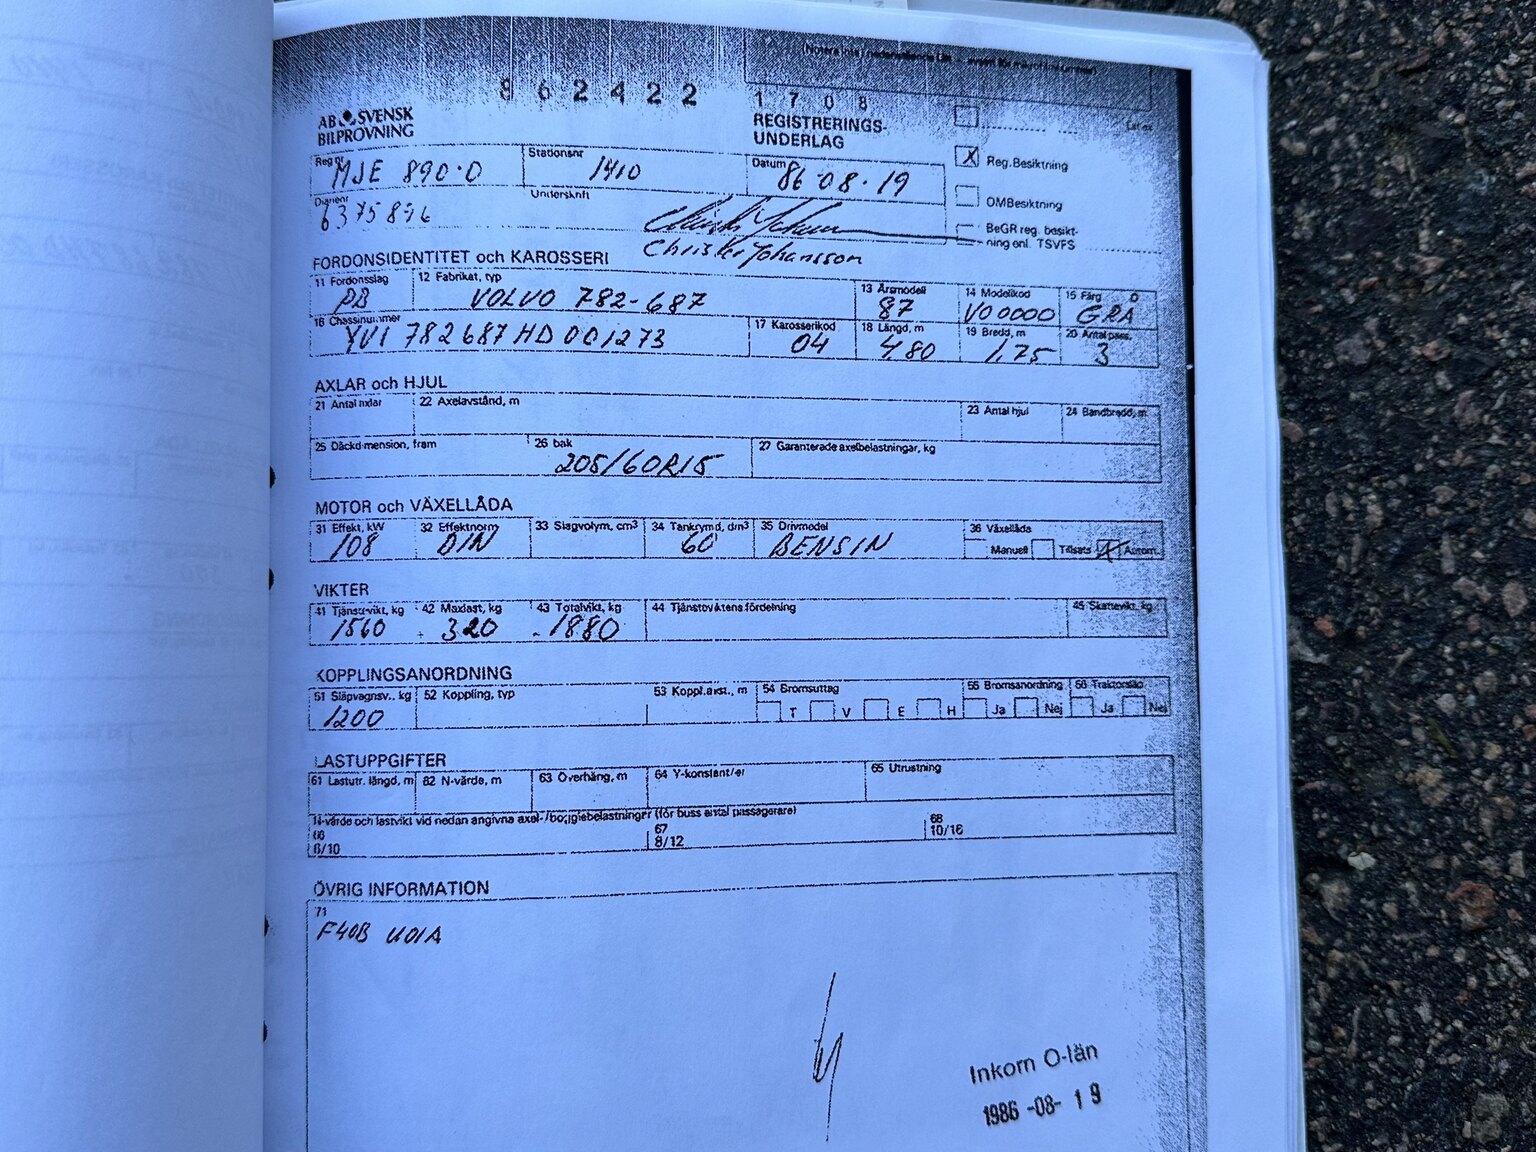 862422
1708
AB SVENSK
BILPROVNING
REGISTRERINGS-
UNDERLAG
Reg nr
MJE 890.0
Stationsnr
1410
Datum
86.08.19
Reg.Besiktning
OMBesiktning
BeGR reg. besikt-
ning enl. TSVFS
Diarienr
6375896
Underskrift
Christer Johansson
FORDONSIDENTITET och KAROSSERI
11 Fordonsslag
PB
12 Fabrikat, typ
VOLVO 782-687
13 Årsmodell
87
14 Modellkod
V00000
15 Färg
GRÅ
16 Chassinummer
YV1 782687HD001273
17 Karosserikod
04
18 Längd, m
4,80
19 Bredd, m
1,75
20 Antal pass.
3
AXLAR och HJUL
21 Antal axlar
22 Axelavstånd, m
23 Antal hjul
24 Bandbredd, m
25 Däckdimension, fram
26 bak
205/60R15
27 Garanterade axelbelastningar, kg
MOTOR och VÄXELLÅDA
31 Effekt, kW
108
32 Effektnorm
DIN
33 Slagvolym, cm³
34 Tankrymd, dm³
60
35 Drivmedel
BENSIN
36 Växellåda
Manuell
Tillsats
X Autom.
VIKTER
41 Tjänstevikt, kg
1560
42 Maxlast, kg
320
43 Totalvikt, kg
1880
44 Tjänsteviktens fördelning
45 Skattevikt, kg
KOPPLINGSANORDNING
51 Släpvagnsv., kg
1200
52 Koppling, typ
53 Koppl.avst., m
54 Bromsuttag
T V E H
55 Bromsanordning
Ja Nej
56 Traktorsläp
Ja Nej
LASTUPPGIFTER
61 Lastutr. längd, m
62 N-värde, m
63 Överhäng, m
64 Y-konstant/er
65 Utrustning
N-värde och lastvikt vid nedan angivna axel-/boggiebelastningar (för buss antal passagerare)
66
8/10
67
8/12
68
10/16
ÖVRIG INFORMATION
71
F40B U01A
Inkom O-län
1986 -08- 19